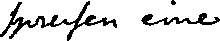 preusen eine